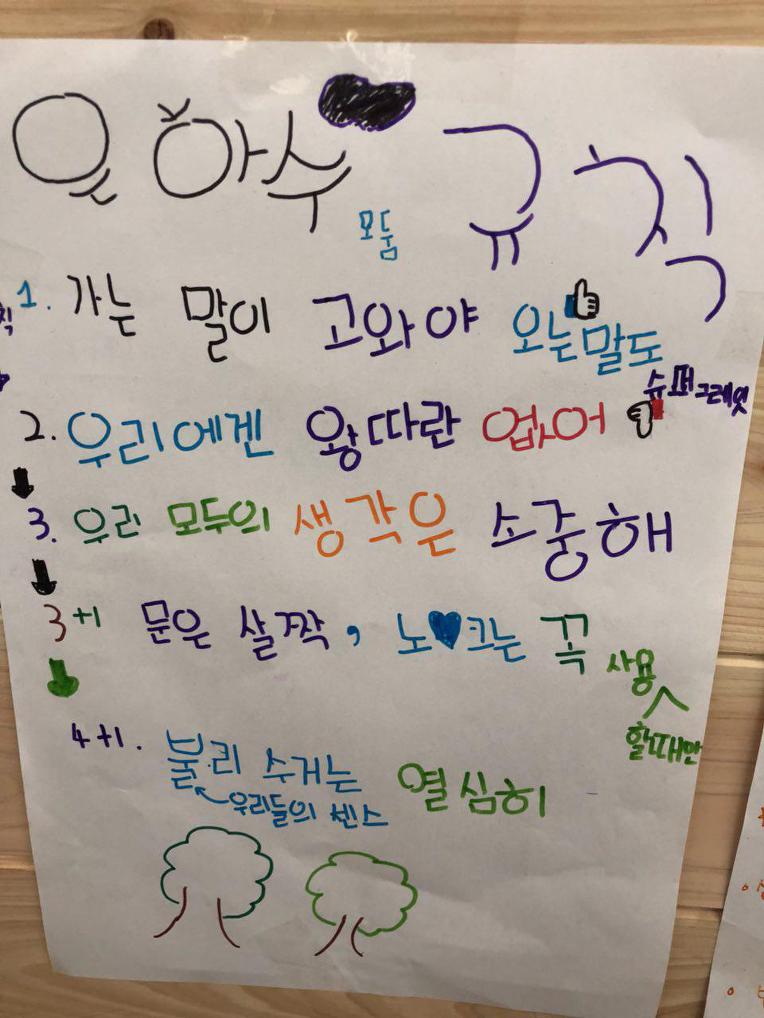 은하수 모둠 규칙
1. 가는 말이 고와야 오는말도
슈퍼그레잇
2. 우리에겐 왕따란 없어
3. 우린 모두의 생각은 소중해
3+1 문은 살짝, 노♥크는 꼭
사용
할때만
4+1. 불리 수거는 열심히
우리들의 센스